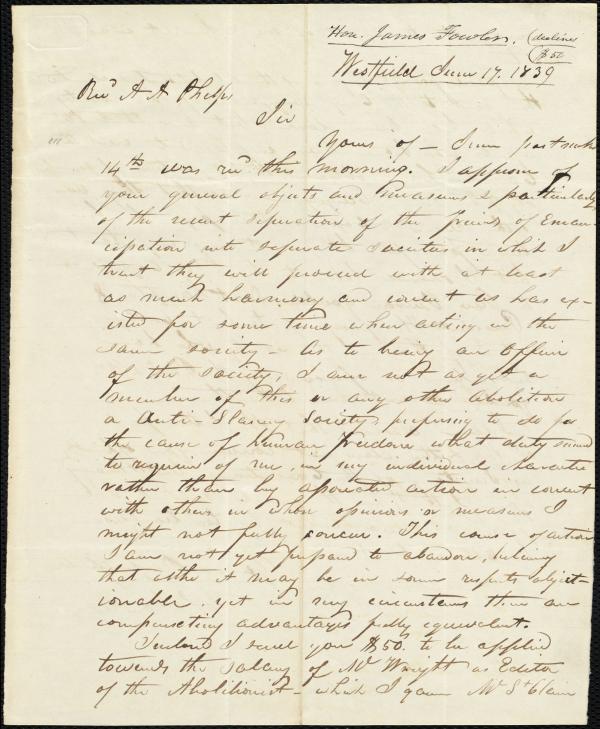 Hon. James Fowler. (declines
$50
Westfield June 17. 1839
Revd A A Phelps
Sir
Yours of – June postmark
14th was recd this morning. I approve of
your general objects and measures & particularly
of the recent separation of the friends of Eman-
cipation into separate societies in which I
trust they will proceed with at least
as much harmony and concert as has ex-
isted for some time when acting in the
same society – As to being an Officer
of the society, I am not as yet a
member of this or any other abolition
or Anti-Slavery Society, preferring to do for
the cause of human freedom what duty seemed
to require of me, in my individual character
rather than by associated action in concert
with others in whose opinions or measures I
might not fully concur. This course of action
I am not yet prepared to abandon, believing
that altho it may be in some respects object-
ionable, yet in my circumstances there are
compensating advantages fully equivalent.
Enclosed I send you $50. to be applied
towards the salary of Mr Wright as Editor
of the Abolitionist – which I gave Mr St Clair